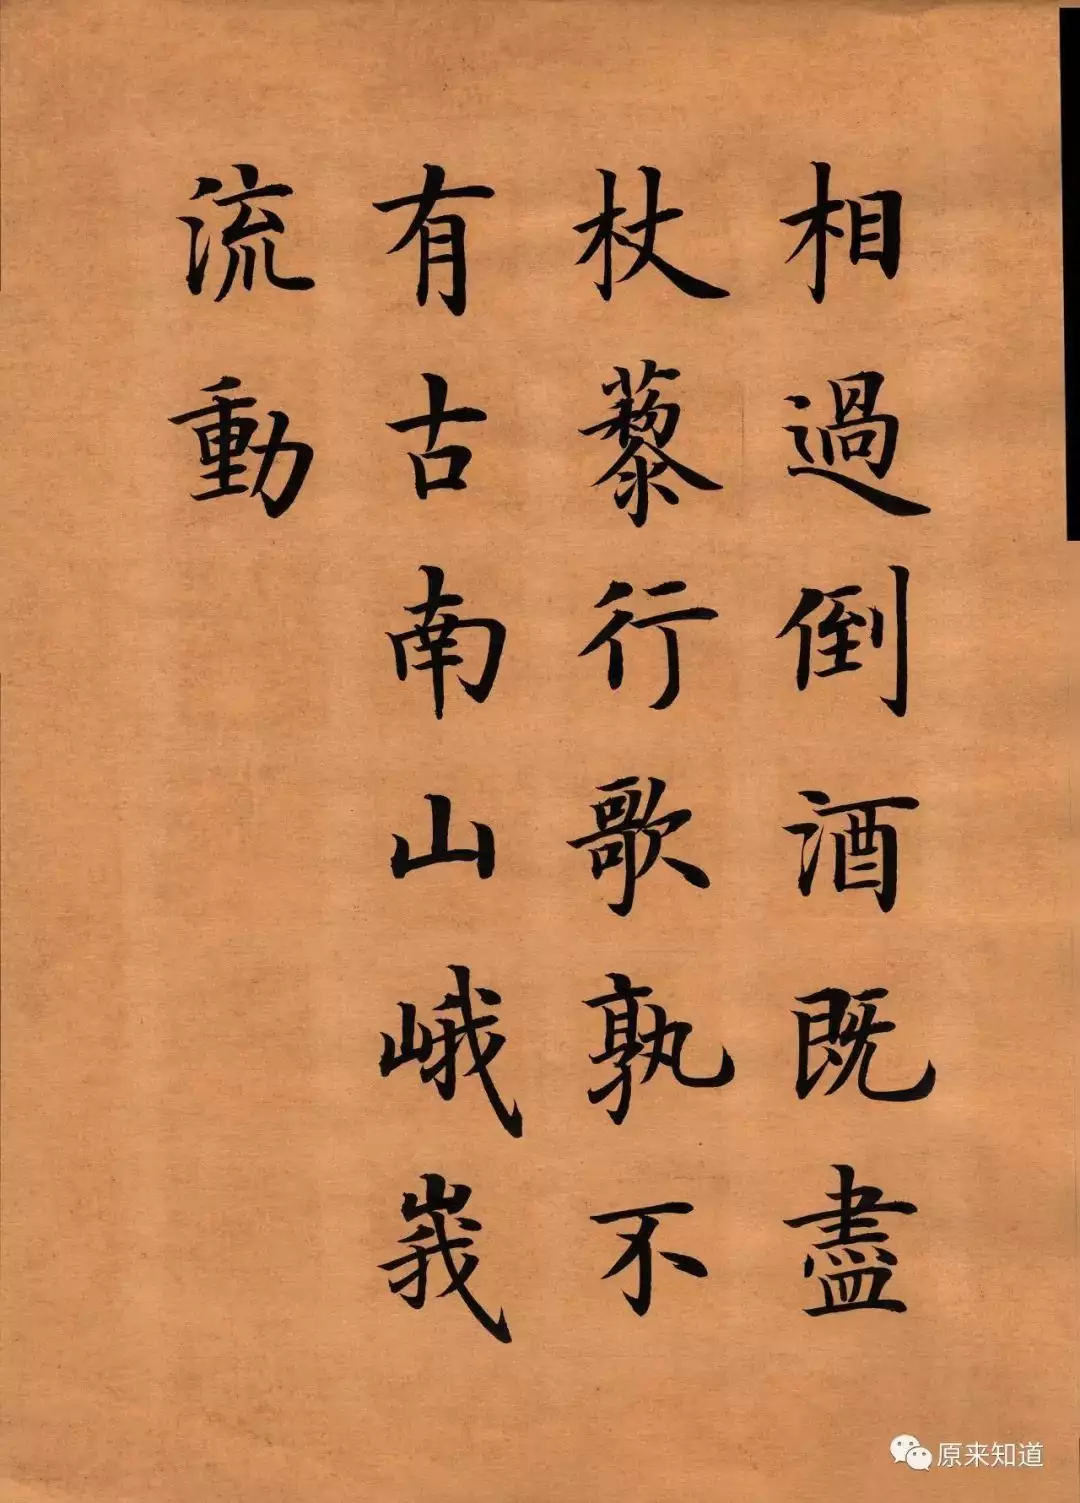 相過倒酒既盡
杖藜行歌孰不
有古南山峨峩
流動
原来知道